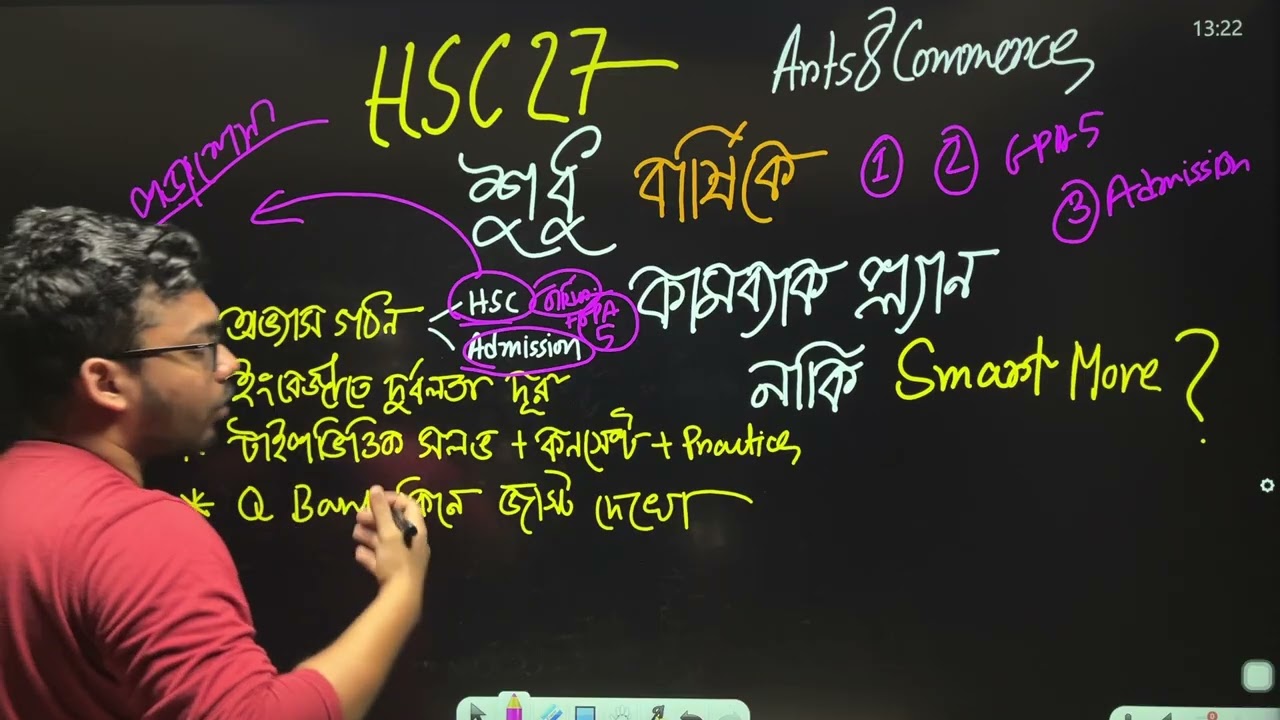 13:22
HSC 27
Arts & Commerce
পড়ালেখা
শুধু বার্ষিকে
① ② GPA 5
③ Admission
কামব্যাক প্ল্যান
নাকি Smart More ?
অভ্যাস গঠন
HSC বার্ষিক + GPA 5
Admission
ইংরেজীতে দুর্বলতা দূর
টাইপভিত্তিক সলভ + কনসেপ্ট + Practices
* Q Bank কিনে জাস্ট দেখো